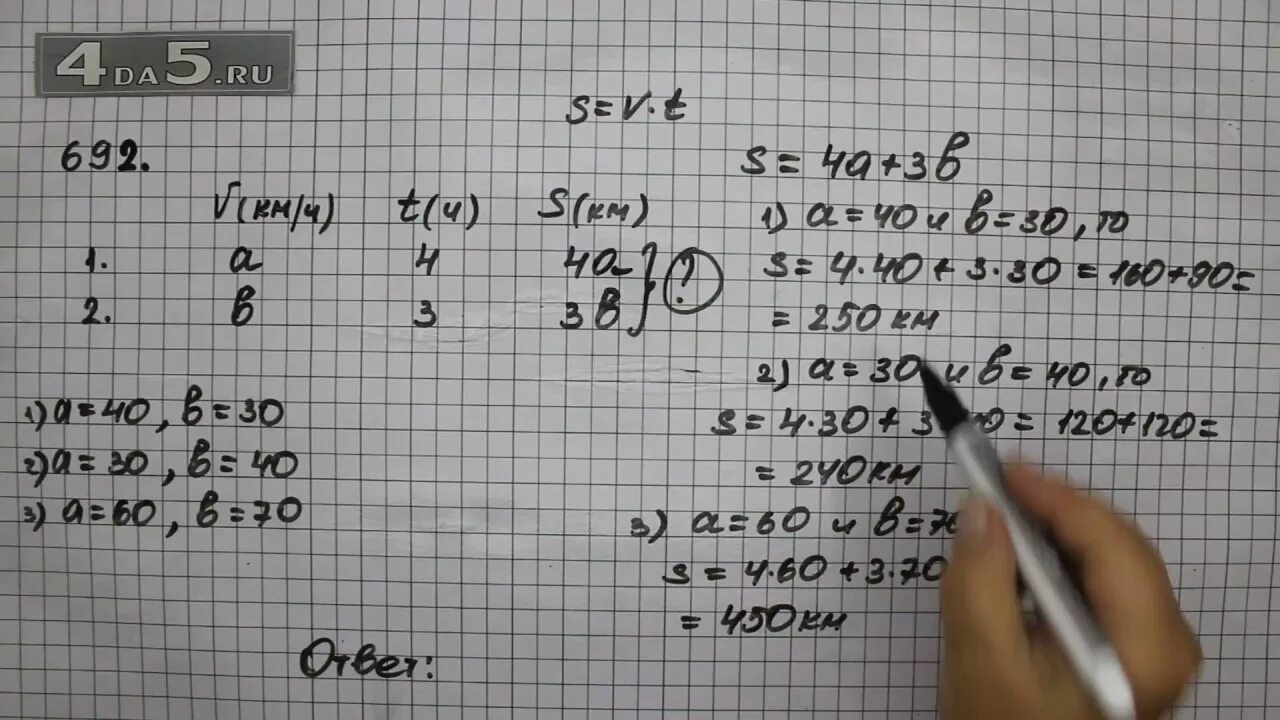 4DA5.RU
s = v · t
692.
V(км/ч) t(ч) S(км)
1. a 4 4a
2. в 3 3в
?
1) a = 40, в = 30
2) a = 30, в = 40
3) a = 60, в = 70
s = 4a + 3в
1) a = 40 и в = 30, то
s = 4·40 + 3·30 = 160 + 90 =
= 250 км
2) a = 30 и в = 40, то
s = 4·30 + 3 0 = 120 + 120 =
= 240 км
3) a = 60 и в = 70
s = 4·60 + 3·70
= 450 км
Ответ: